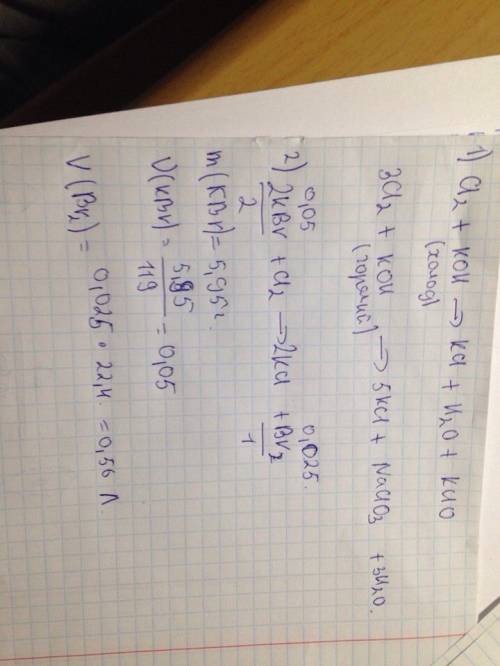 1) Cl2 + KOH → KCl + H2O + KClO
(холод)
3Cl2 + KOH → 5KCl + NaClO3 + 3H2O.
(горячий)
0,05 0,025.
2) 2KBr + Cl2 → 2KCl + Br2
2 1
m(KBr) = 5,95г.
ν(KBr) = 5,95 / 119 = 0,05
V(Br2) = 0,025 · 22,4 = 0,56 л